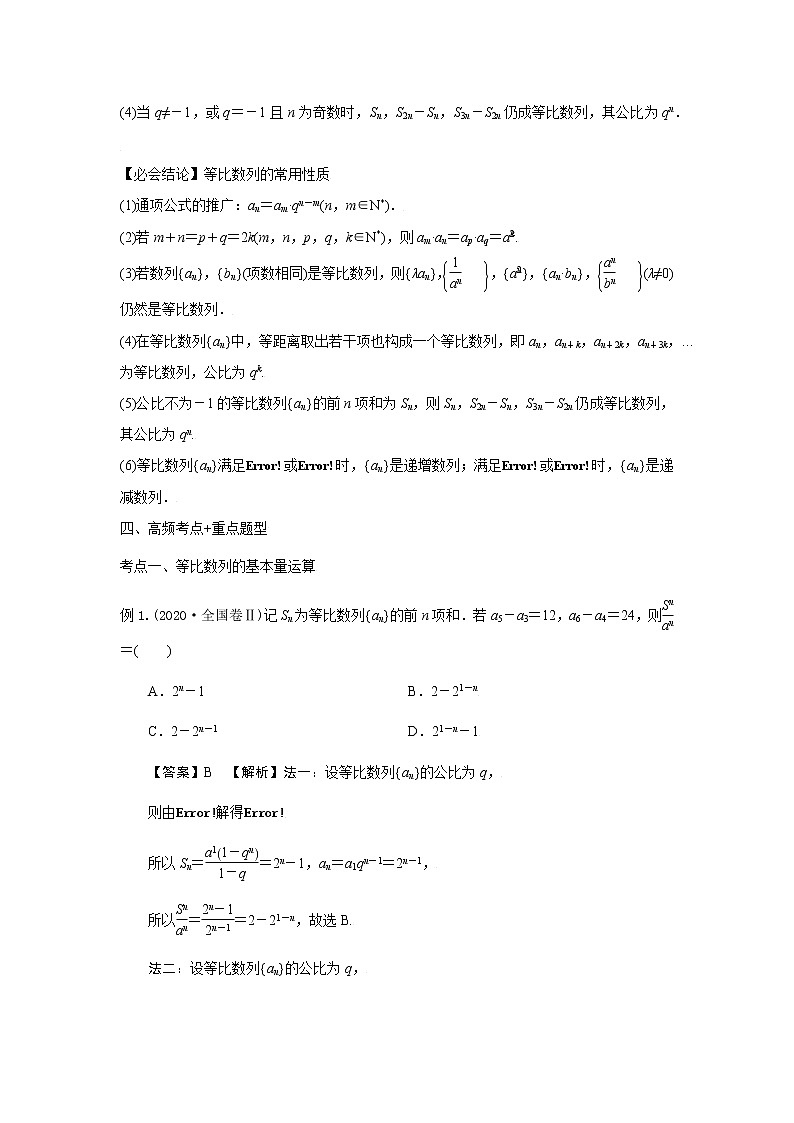 (4)当 q≠－1，或 q＝－1 且 n 为奇数时，Sn，S2n－Sn，S3n－S2n 仍成等比数列，其公比为 qⁿ．
【必会结论】等比数列的常用性质
(1)通项公式的推广：an＝am·qⁿ⁻ᵐ(n，m∈N*)．
(2)若 m＋n＝p＋q＝2k(m，n，p，q，k∈N*)，则 am·an＝ap·aq＝a
(3)若数列{an}，{bn}(项数相同)是等比数列，则{λan}，{1/an}，{a²n}，{an·bn}，{an/bn}(λ≠0)
仍然是等比数列．
(4)在等比数列{an}中，等距离取出若干项也构成一个等比数列，即 an，an＋k，an＋2k，an＋3k，…
为等比数列，公比为 qᵏ.
(5)公比不为－1 的等比数列{an}的前 n 项和为 Sn，则 Sn，S2n－Sn，S3n－S2n 仍成等比数列，
其公比为 qⁿ.
(6)等比数列{an}满足Error!或Error!时，{an}是递增数列；满足Error!或Error!时，{an}是递
减数列．
四、高频考点+重点题型
考点一、等比数列的基本量运算
例 1.(2020·全国卷Ⅱ)记 Sn 为等比数列{an}的前 n 项和．若 a5－a3＝12，a6－a4＝24，则Sn/an
＝(　　)
A．2ⁿ－1　B．2－2¹⁻ⁿ
C．2－2ⁿ⁻¹　D．2¹⁻ⁿ－1
【答案】B　【解析】法一：设等比数列{an}的公比为 q，
则由Error!解得Error!
所以 Sn＝a1(1－qⁿ)/1－q＝2ⁿ－1，an＝a1qⁿ⁻¹＝2ⁿ⁻¹，
所以Sn/an＝2ⁿ－1/2ⁿ⁻¹＝2－2¹⁻ⁿ，故选 B.
法二：设等比数列{an}的公比为 q，